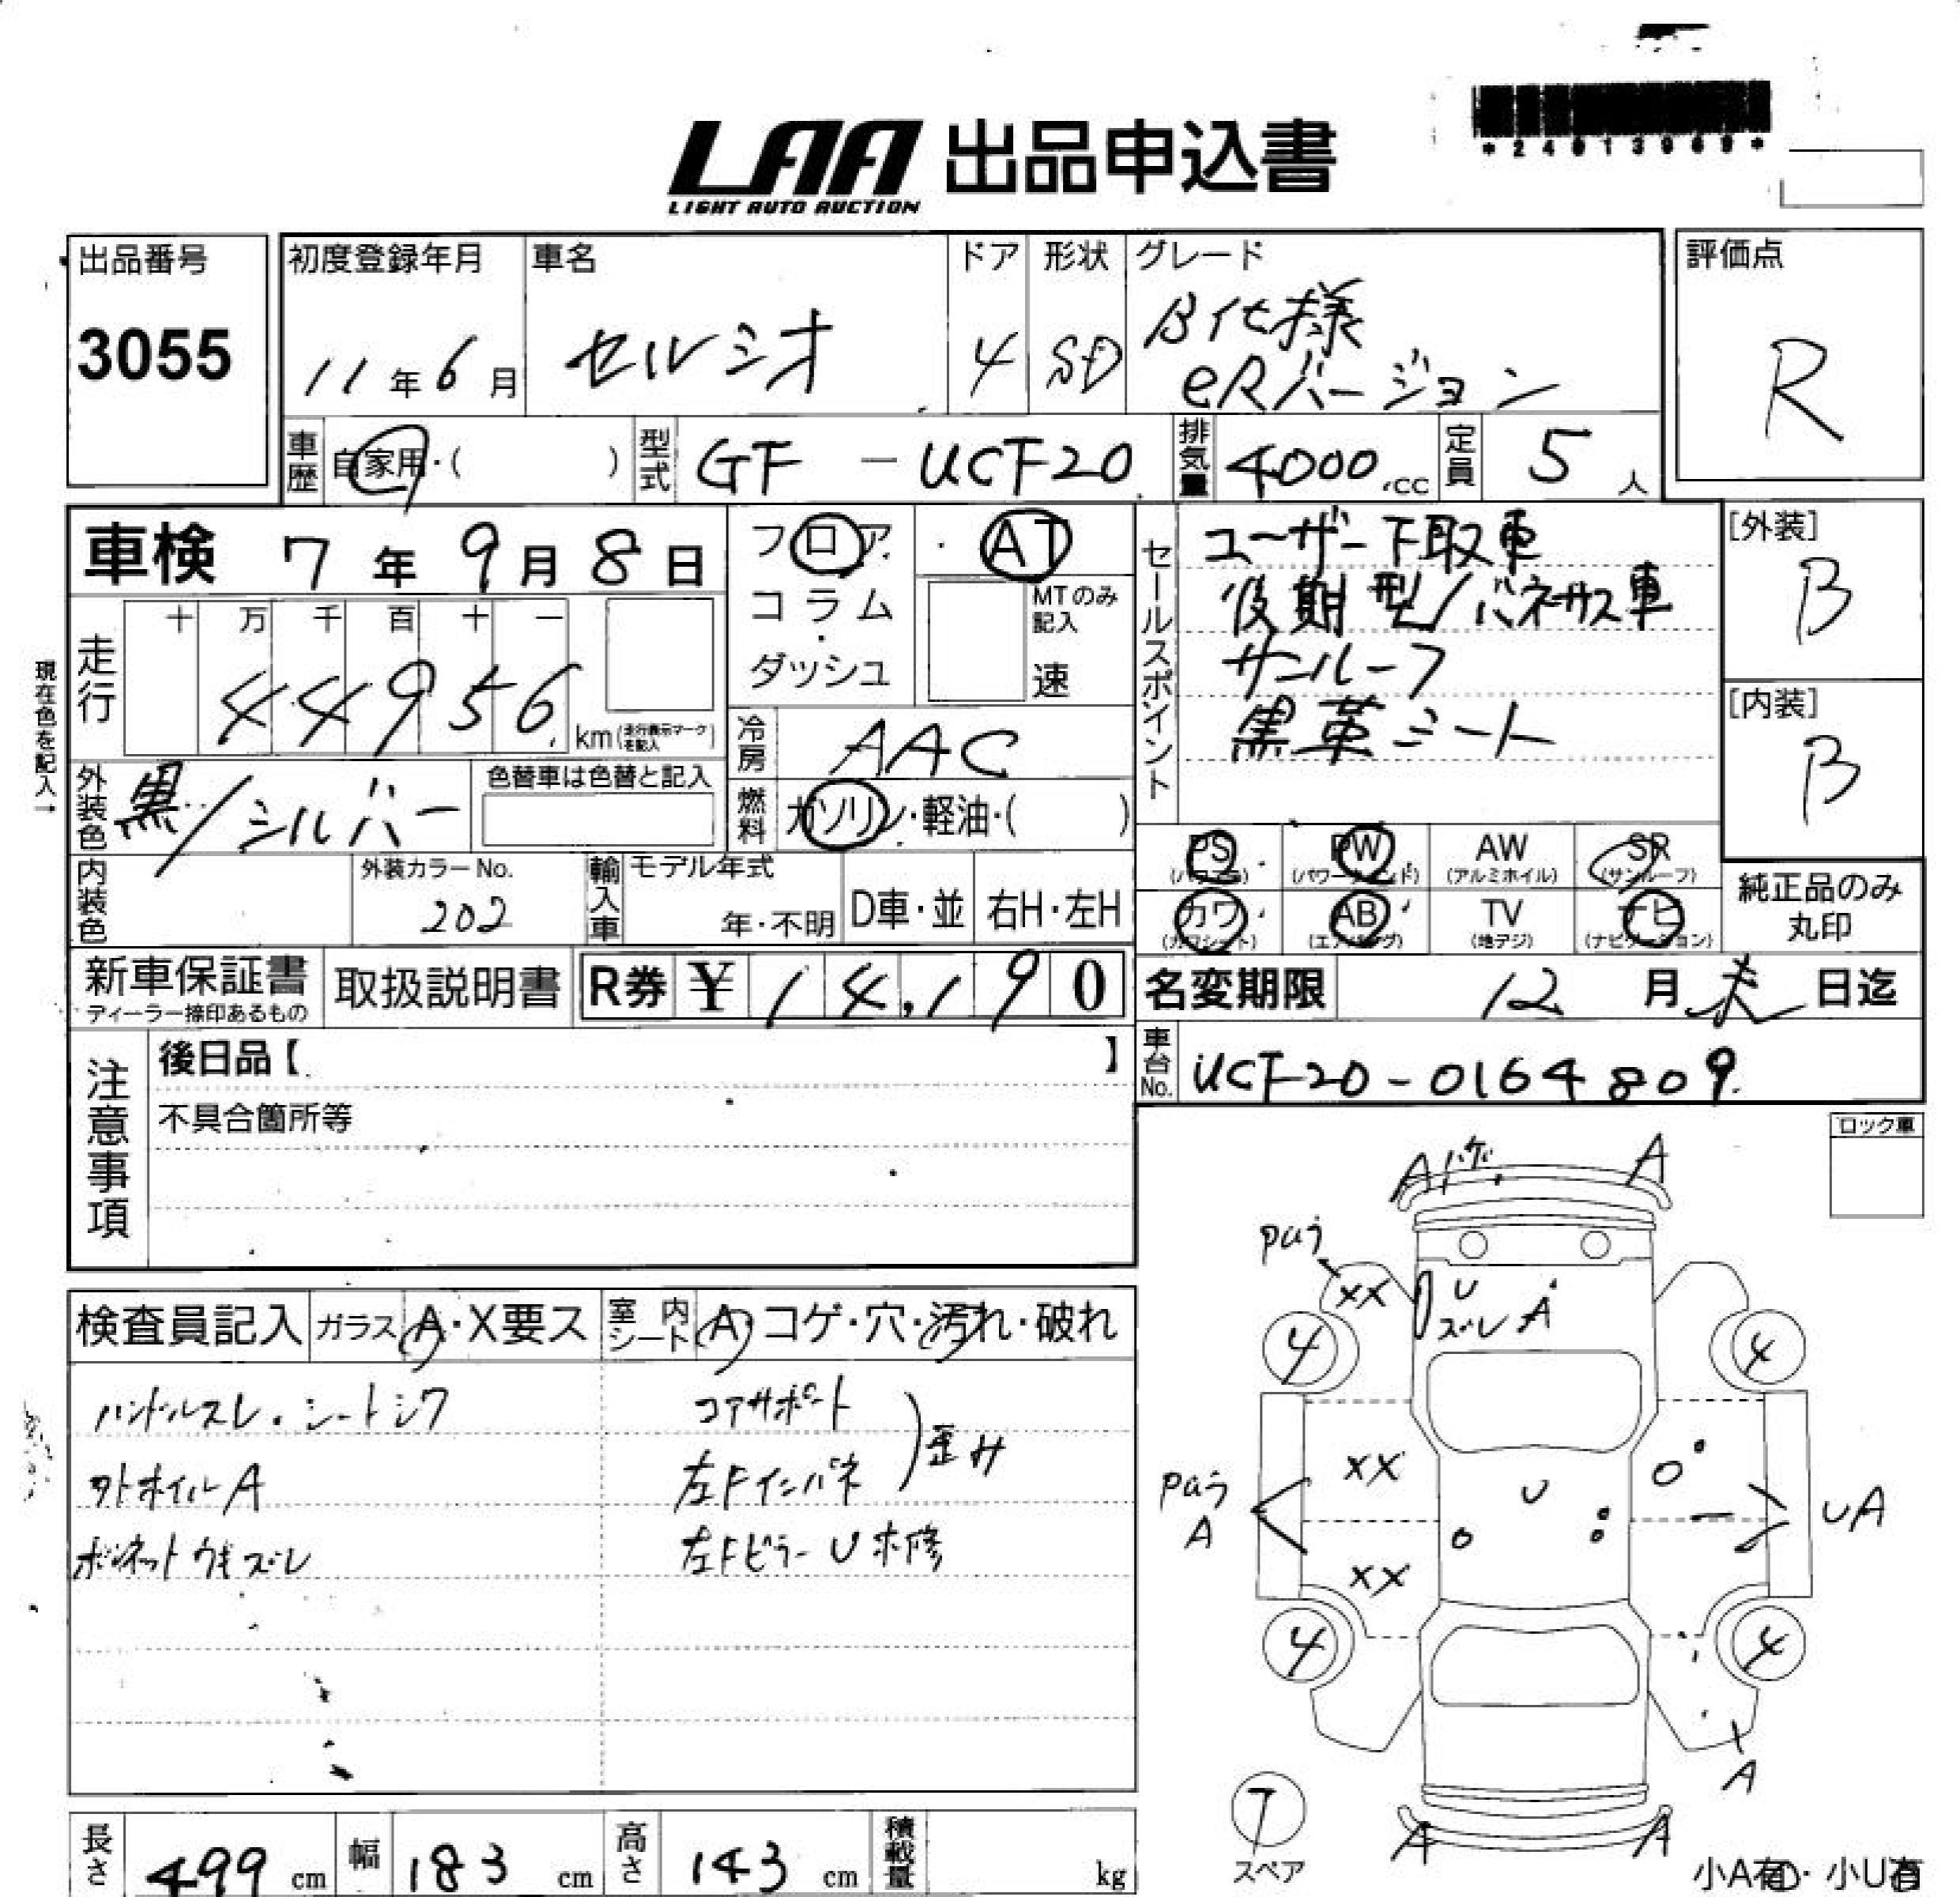 LAA 出品申込書
LIGHT AUTO AUCTION
出品番号
3055
初度登録年月
11年6月
車名
セルシオ
ドア
4
形状
SD
グレード
B仕様
eRバージョン
評価点
R
車歴
自家用・( )
型式
GF-UCF20
排気量
4000.cc
定員
5人
車検 7年9月8日
フロア・AT
コラム
・
ダッシュ
MTのみ記入
速
セールスポイント
ユーザー下取車
後期型/バネサス車
サンルーフ
黒革シート
[外装]
B
[内装]
B
現在色を記入→
走行
十 万 千 百 十 一
44956
km(走行表示マークを記入)
冷房
AAC
外装色
黒/シルバー
色替車は色替と記入
燃料
ガソリン・軽油・( )
内装色
外装カラーNo.
202
輸入車
モデル年式
年・不明
D車・並
右H・左H
PS (パワステ)
PW (パワーウィンド)
AW (アルミホイル)
SR (サンルーフ)
カワ (カワシート)
AB (エアバッグ)
TV (地デジ)
ナビ (ナビゲーション)
純正品のみ
丸印
新車保証書
ディーラー捺印あるもの
取扱説明書
R券 ¥14,190
名変期限
12月末日迄
車台No.
UCF20-0164809
注意事項
後日品【 】
不具合箇所等
ロック車
検査員記入
ガラス A・X要ス
室内シート A・コゲ・穴・汚れ・破れ
ハンドルスレ・シートシワ
コアサポート
左Fインパネ
歪み
外ホイルA
ボンネットウキズレ
左FピラーU補修
A ハゲ
A
paう
XX
U
ズレ A
4
4
XX
paう
A
U
UA
XX
4
4
A
T
スペア
A
A
小A有・小U有
長さ
499 cm
幅
183 cm
高さ
143 cm
積載量
kg